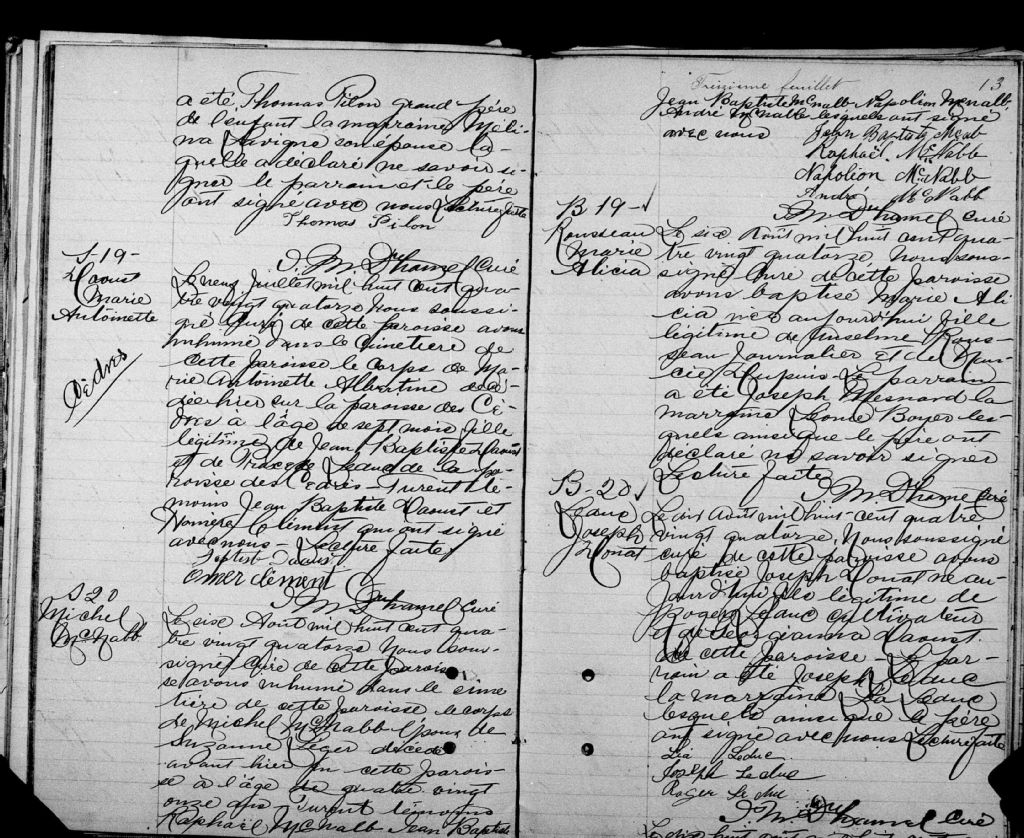 a été Thomas Pilon grand père
de l'enfant la marraine Méli-
na Lavigne son épouse la-
quelle a déclaré ne savoir si-
gner le parrain et le père
ont signé avec nous Lecture faite
Thomas Pilon
J. M. Duhamel Curé
S-19-
Daoust
Marie
Antoinette
Cèdres
Le neuf Juillet mil huit cent qua-
tre vingt quatorze Nous soussi-
gné Curé de cette paroisse avons
inhumé dans le Cimetière de
cette paroisse le Corps de Ma-
rie Antoinette Albertine décé-
dée hier sur la paroisse des Cè-
dres à l'âge de sept mois fille
légitime de Jean Baptiste Daoust
et de Leduc de la pa-
roisse des Cèdres - Furent té-
moins Jean Baptiste Daoust et
Homère Clément qui ont signé
avec nous - Lecture faite
Batist Daoust
Omer clément
J. M. Duhamel Curé
S 20
Michel
McNabb
Le six Août mil huit cent qua-
tre vingt quatorze Nous sous-
signé Curé de cette parois-
se avons inhumé dans le cime-
tière de cette paroisse le corps
de Michel McNabb Époux de
Suzanne Léger décédé
avant hier en cette parois-
se à l'âge de quatre vingt
onze ans Furent témoins
Raphaël McNabb Jean Baptiste
Treizième feuillet 13
Jean Baptiste McNabb Napoléon McNabb
André McNabb lesquels ont signé
avec nous
Jean Baptist
Raphaël McNabb
Napoléon McNabb
André McNabb
J. M. Duhamel Curé
B 19-
Rousseau
Marie
Alicia
Le six Août mil huit cent qua-
tre vingt quatorze, Nous sous-
signé Curé de cette paroisse
avons baptisé Marie Ali-
cia née aujourd'hui fille
légitime de Anselme Rous-
seau Journalier Et de
Dupuis - Le parrain
a été Joseph Mesnard la
marraine Boyer les-
quels ainsi que le père ont
déclaré ne savoir signer
Lecture faite
J. M. Duhamel Curé
B-20
Leduc
Joseph
Donat
Le dix Août mil huit cent quatre
vingt quatorze, Nous soussigné
curé de cette paroisse avons
baptisé Joseph Donat né au-
jourd'hui fils légitime de
Roger Leduc cultivateur
et de Georgianna Daoust
de cette paroisse - Le par-
rain a été Joseph Leduc
la marraine Lia Leduc
lesquels ainsi que le père
ont signé avec nous Lecture faite
Lia Leduc
Joseph Leduc
Roger Le duc
J. M. Duhamel Curé